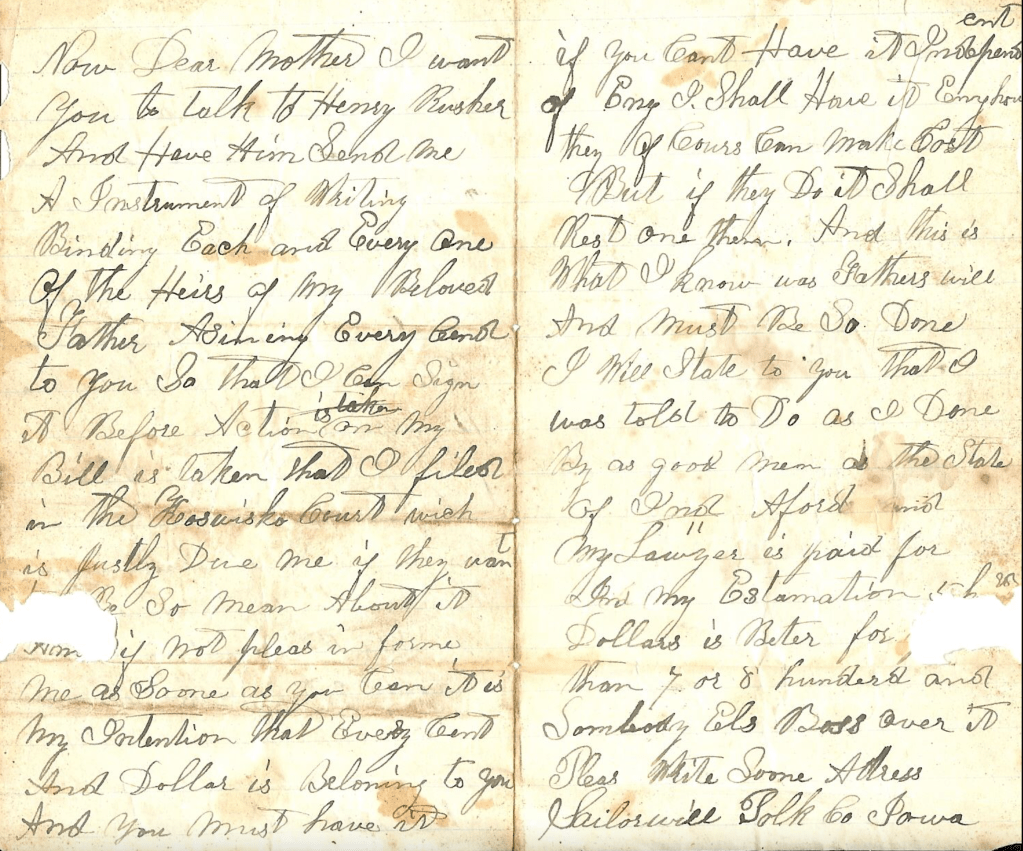 Now Dear Mother I want
You to talk to Henry Rusher
And Have Him Send me
A Instrument of Writing
Binding Each and Every one
Of the Heirs of My Beloved
Father Asining Every Cend
to you So that I Can Sign
it Before Action is taken on My
Bill is taken that I filed
in the Koswisko Court wich
is Justly Due me if they want
Be So mean About it
if not pleas in forme
me as Soone as you Can it is
My Intention that Every Cent
And Dollar is Beloning to you
And you Must have it
if you Cant Have it Independent
of Eny I Shall Have it Enyhow
they of Cours Can Make Cost
But if they Do it Shall
Rest one them. And this is
What I know was Fathers will
And Must Be So Done
I Will State to you that I
was told to Do as I Done
By as good men as the State
Of Ind Aford and
My Lawyer is paid for
In my Estamation
Dollars is Beter for
than 7 or 8 hunderd and
Sombody Els Boss over it
Pleas Write Soone Adress
Sailorwill Polk Co Iowa